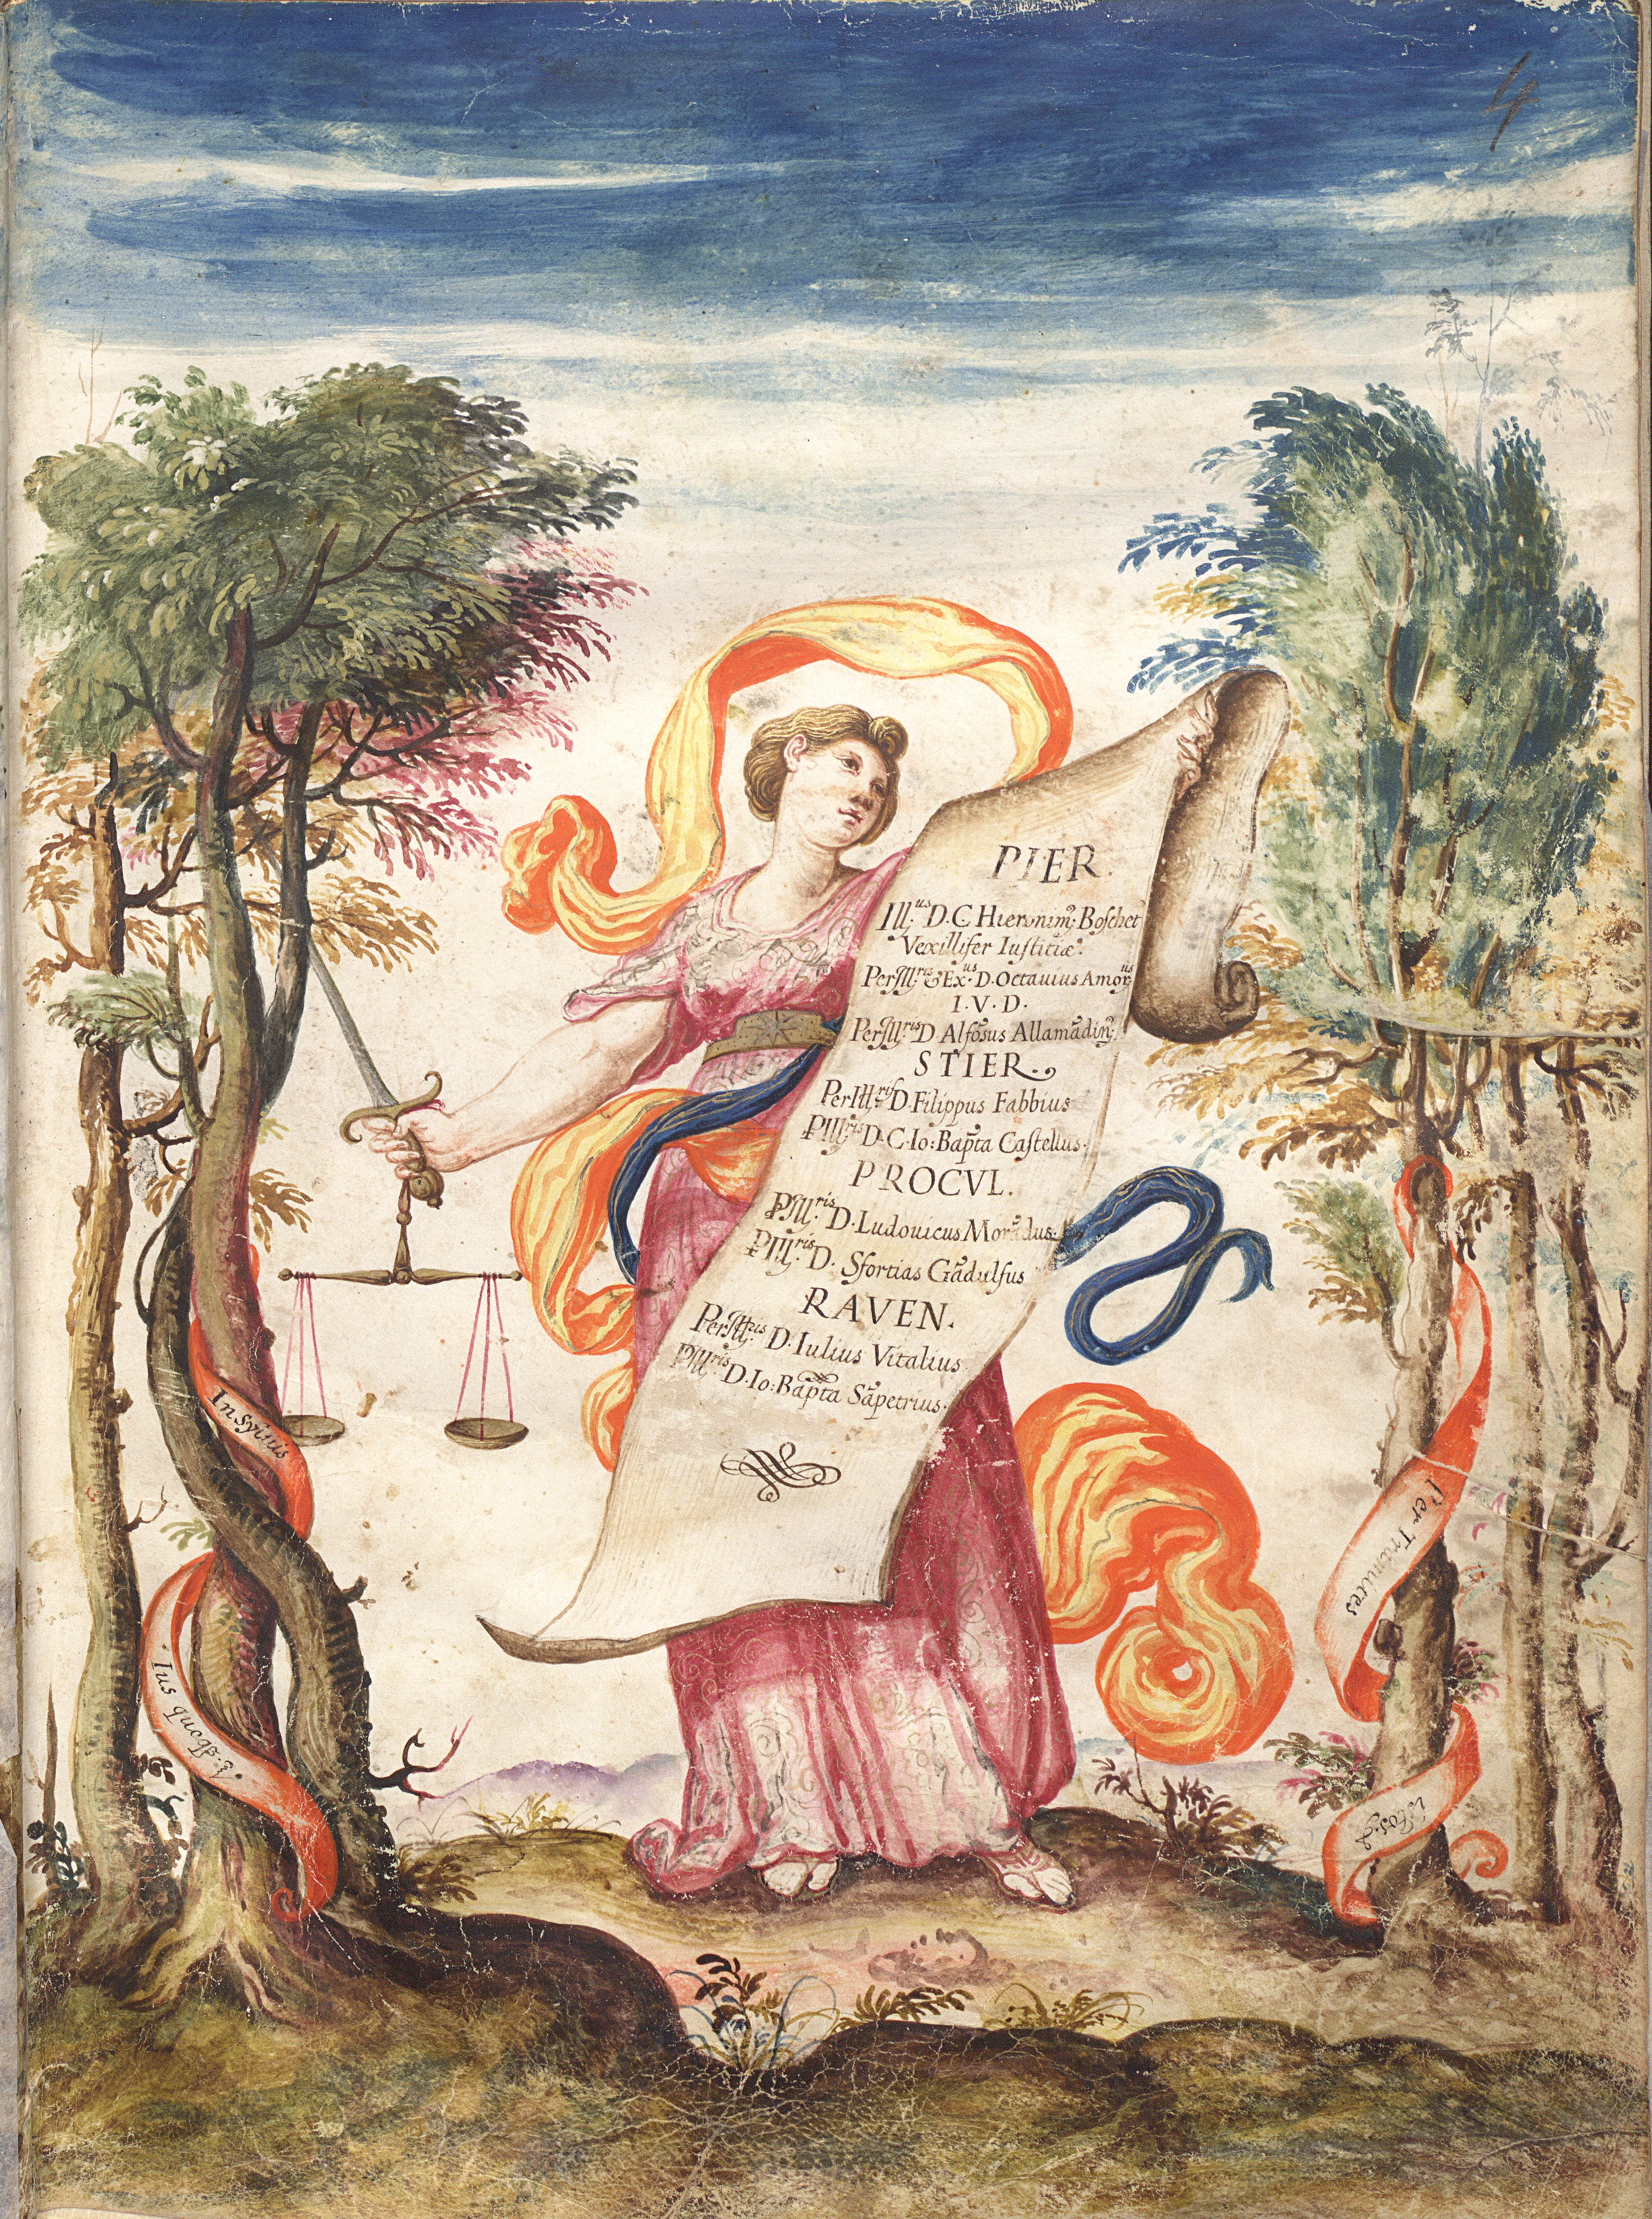 4
PIER.
Ill:us D. C Hieronim9: Boschet9
Vexillifer Iustitiæ:
PerIll:ris & Ex:us D. Octauius Amor:us
I. V. D.
PerIll:ris D Alfõsus Allamãdin9:
STIER.
PerIll:ris D. Filippus Fabbius
PIll:ris D. C. Io: Bapta Castellus.
PROCVL.
PIll:ris D. Ludouicus Morãdus.
PIll:ris D. Sfortias Gãdulfus
RAVEN.
PerIll:ris D. Iulius Vitalius
PIll:ris D. Io: Bapta Sãpetrius.
Insytus
Ius quoq3.
Per Tramites